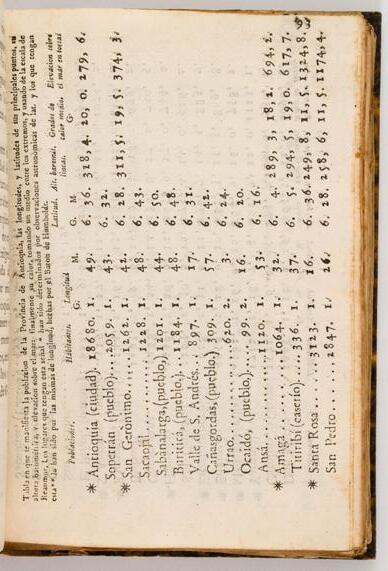 93
Tabla en que se manifiesta la poblacion de la Provincia de Antioquia, las longitudes, y latitudes de sus principales puntos, su
altura barométrica, y elevacion sobre el mar: finalmente su calor, tomando un medio entre los extremos, y usando de la escala de
Reaumur. Los lugares que tengan esta señal * han sido determinados por observaciones astronómicas de lat. y los que tengan
esta ** la han sido por las mismas de longitud, hechas por el Baron de Humbolde.
Poblaciones. Habitantes. Longitud Latitud. Alt. baromét. Grados de Elevacion sobre
lineas. calor medio. el mar en toesas
G. M. G. M. G.
* Antioquia (ciudad). 18680. 1. 49. 6. 36. 318, 4. 20, 0. 279, 6.
Sopetrán (pueblo)...2059. 1. 43. 6. 32.
* San Gerónimo....1262. 1. 42. 6. 28. 311, 5. 19, 5. 374, 3.
Sacaojal..........1228. 1. 48. 6. 43.
Sabanalarga, (pueblo,) 1201. 1. 44. 6. 50.
Buritica, (pueblo,). 1184. 1. 48. 6. 48.
Valle de S. Andrés. 897. 1. 17. 6. 31.
Cañasgordas, (pueblo,) 309. 1. 57. 6. 42.
Urrao............620. 2. 3. 6. 24.
Ocaidó, (pueblo,)...99. 2. 16. 6. 20.
Ansá............1120. 1. 53. 6. 16.
* Amagá..........1064. 1. 32. 6. 4. 289, 3. 18, 2. 694, 2.
Titiribí (caserio)....336. 1. 37. 6. 5. 294, 5. 19, 0. 617, 7.
* Santa Rosa......3123. 1. 16. 6. 36. 249, 8. 11, 5. 1324, 8.
San Pedro.......2847. 1. 26. 6. 28. 258, 6. 11, 5. 1174, 4.